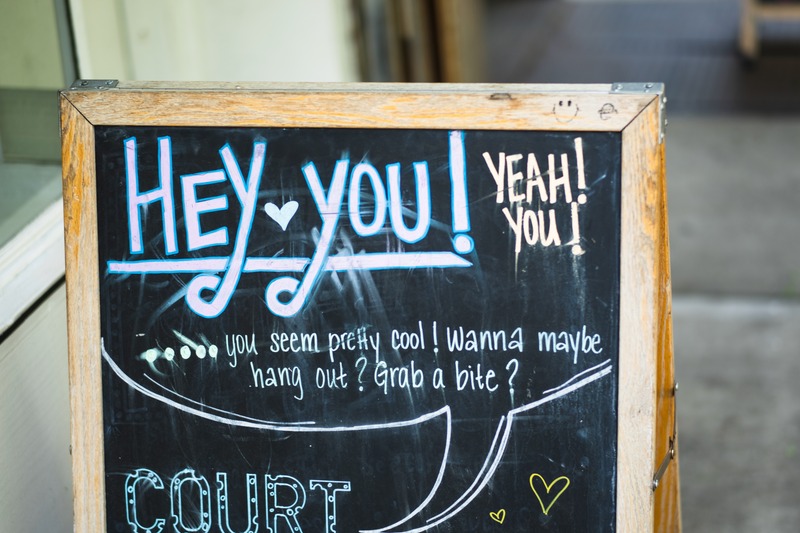 HEY YOU!
YEAH!
YOU!
..... you seem pretty cool! Wanna maybe
hang out? Grab a bite?
COURT